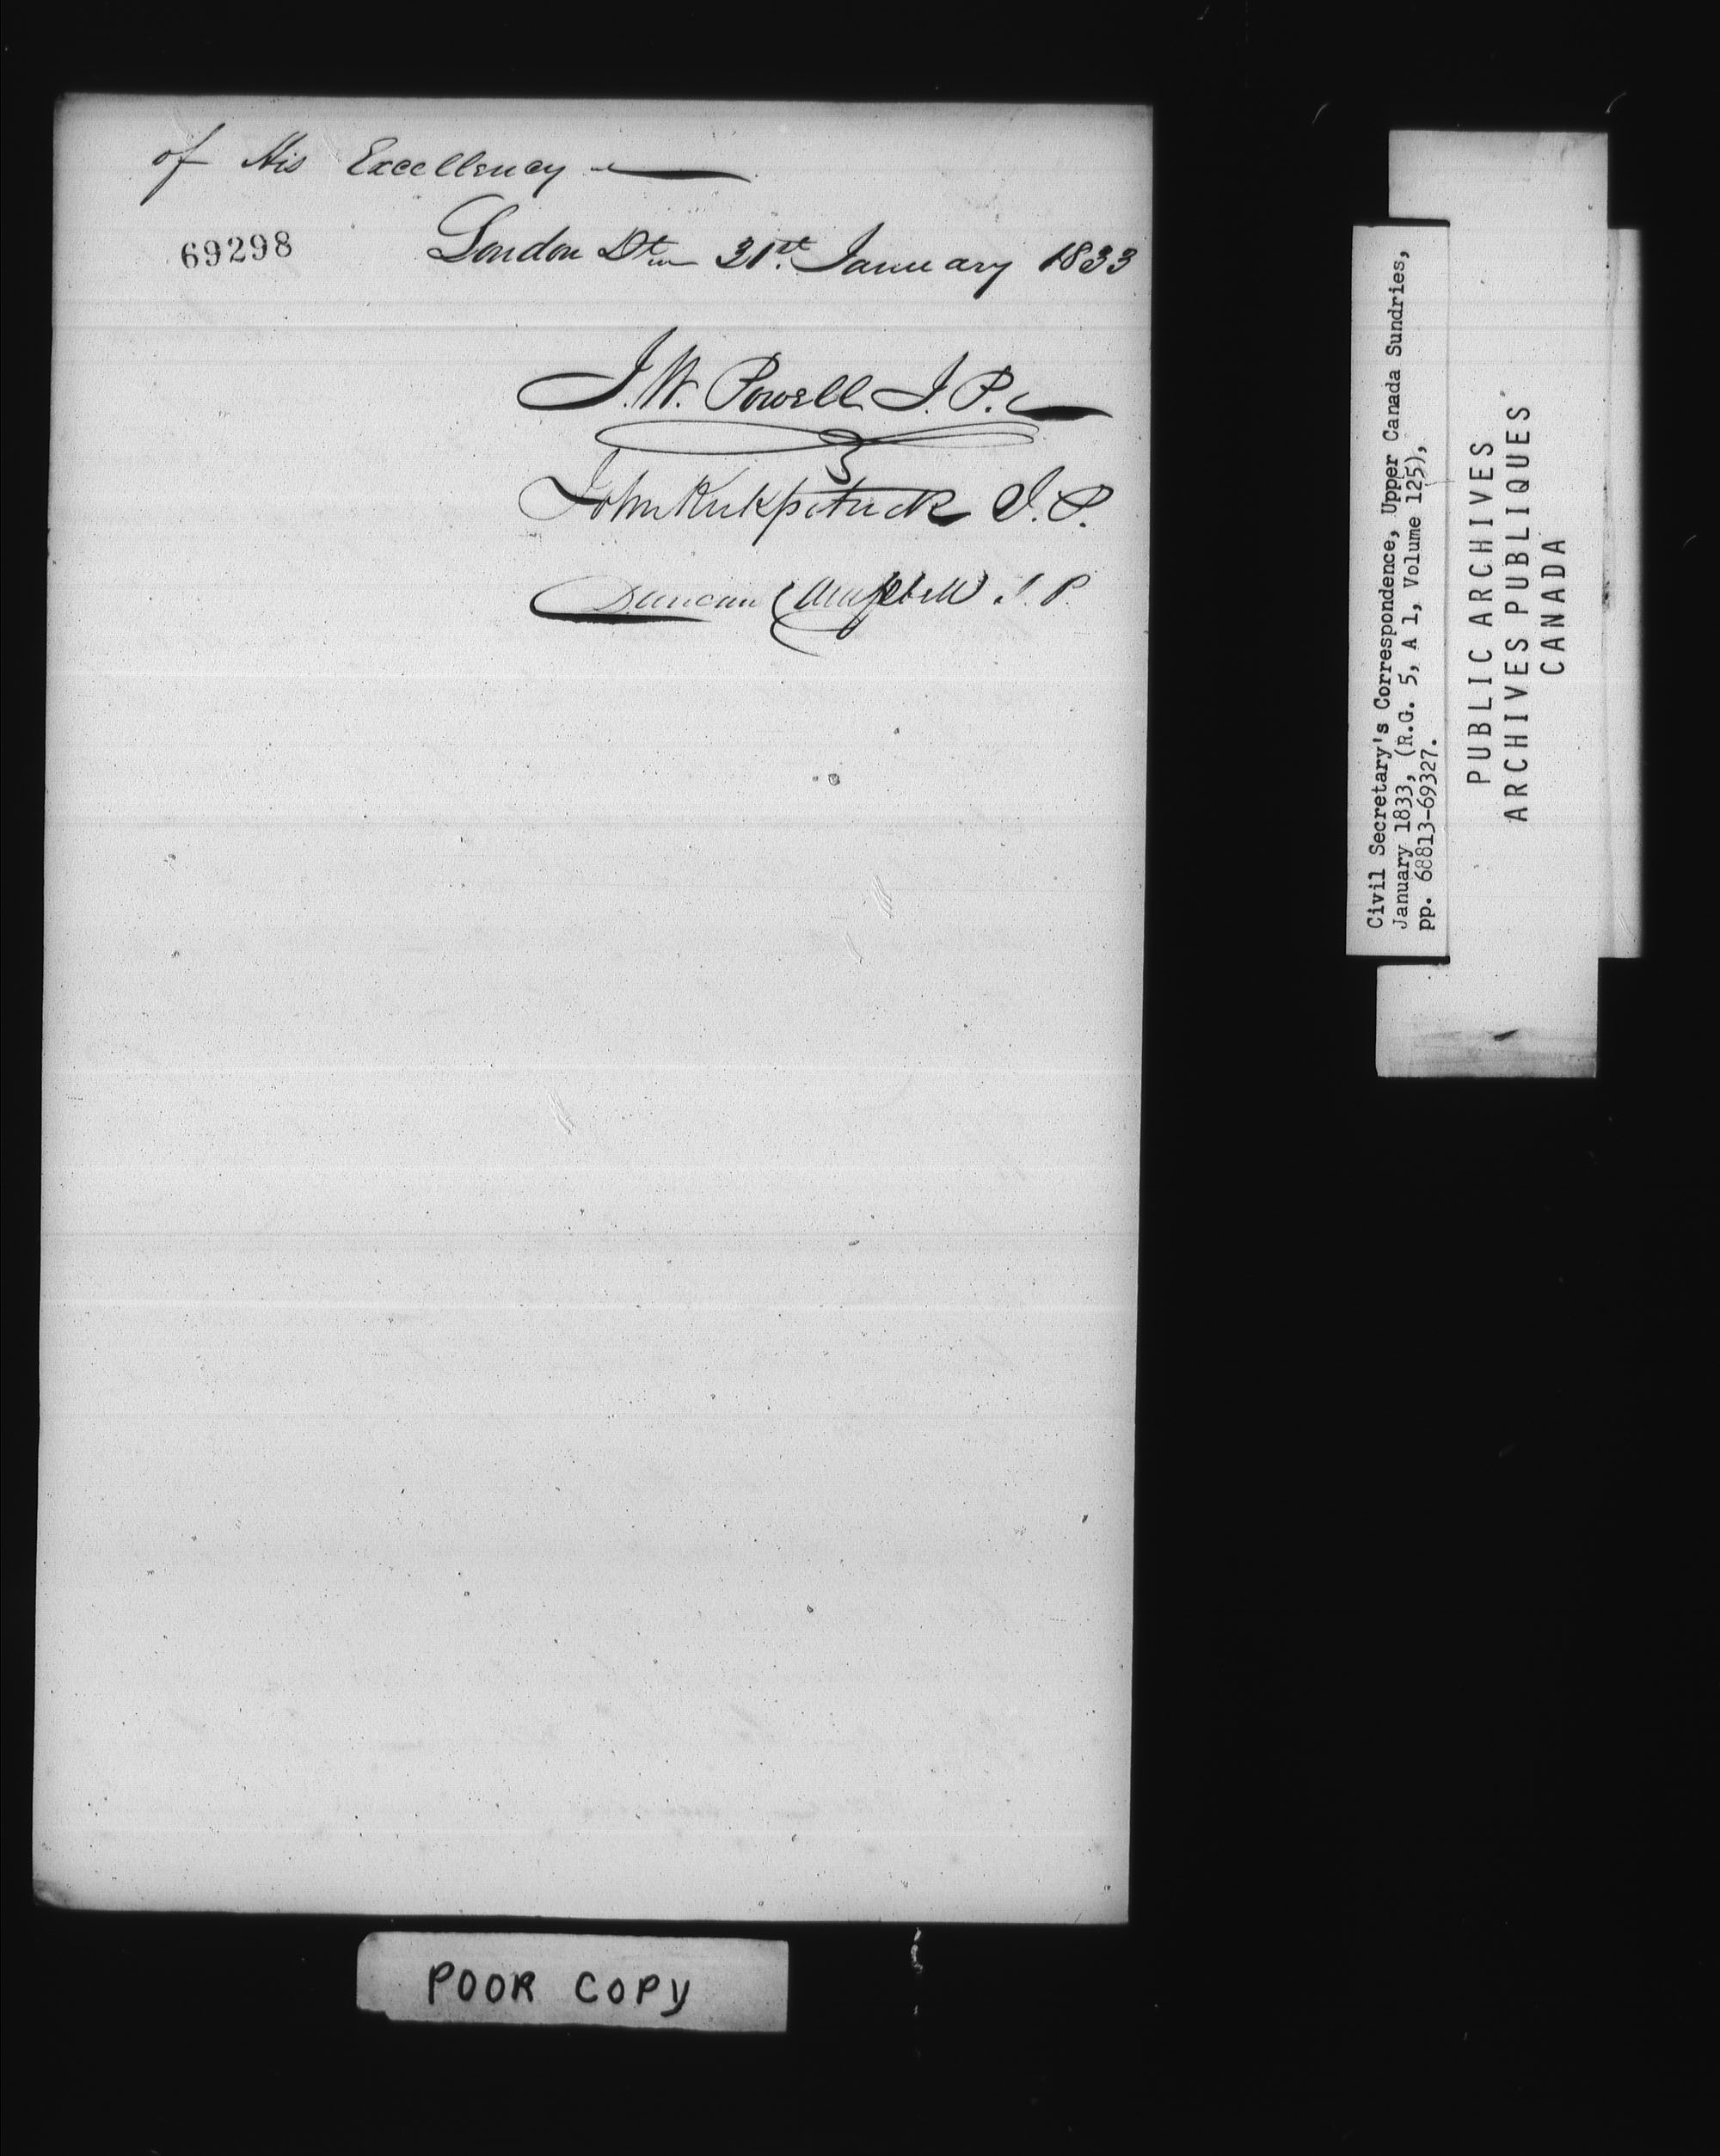 of His Excellency
69298
London Dt 31st January 1833
J. W. Powell J. P.
John Kirkpatrick J. P.
Duncan Campbell J. P.
Civil Secretary's Correspondence, Upper Canada Sundries,
January 1833, (R.G. 5, A 1, Volume 125),
pp. 68813-69327.
PUBLIC ARCHIVES
ARCHIVES PUBLIQUES
CANADA
POOR COPY